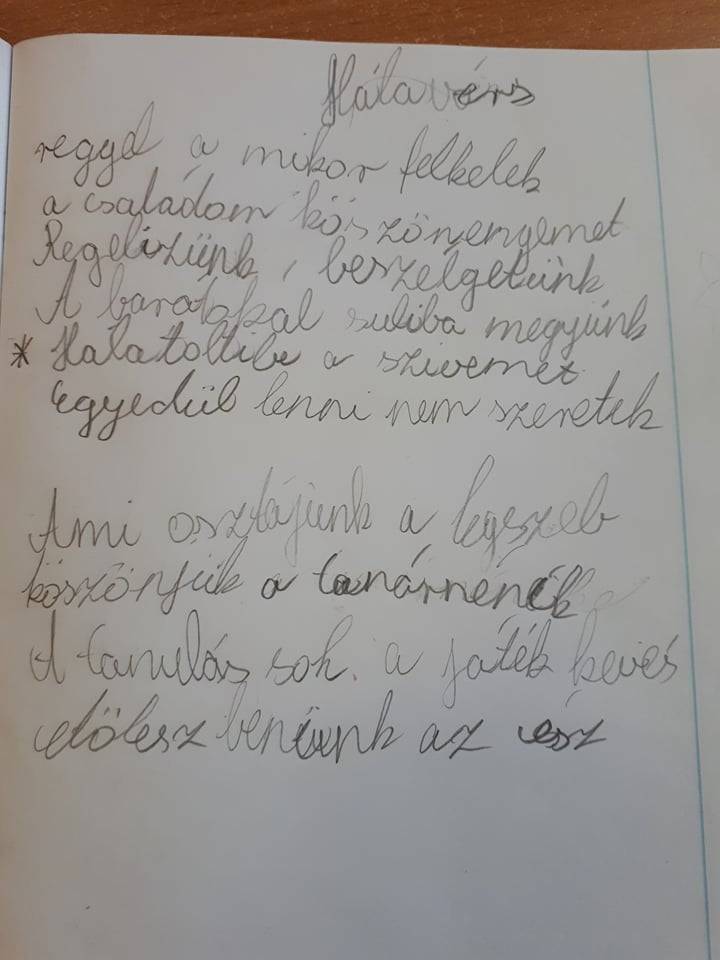 Hála vérs
reggel a mikor felkelek
a családom köszönenyemet
Regelizünk, beszélgetünk
A baratokkal suliba megyünk
* Hála tölti be a szivemet
Egyedül lenni nem szeretek
Ami osztájunk a legszeb
köszönjük a tanárnenik
A tanulás sok. a játék kevés
előlesz benünk az ész